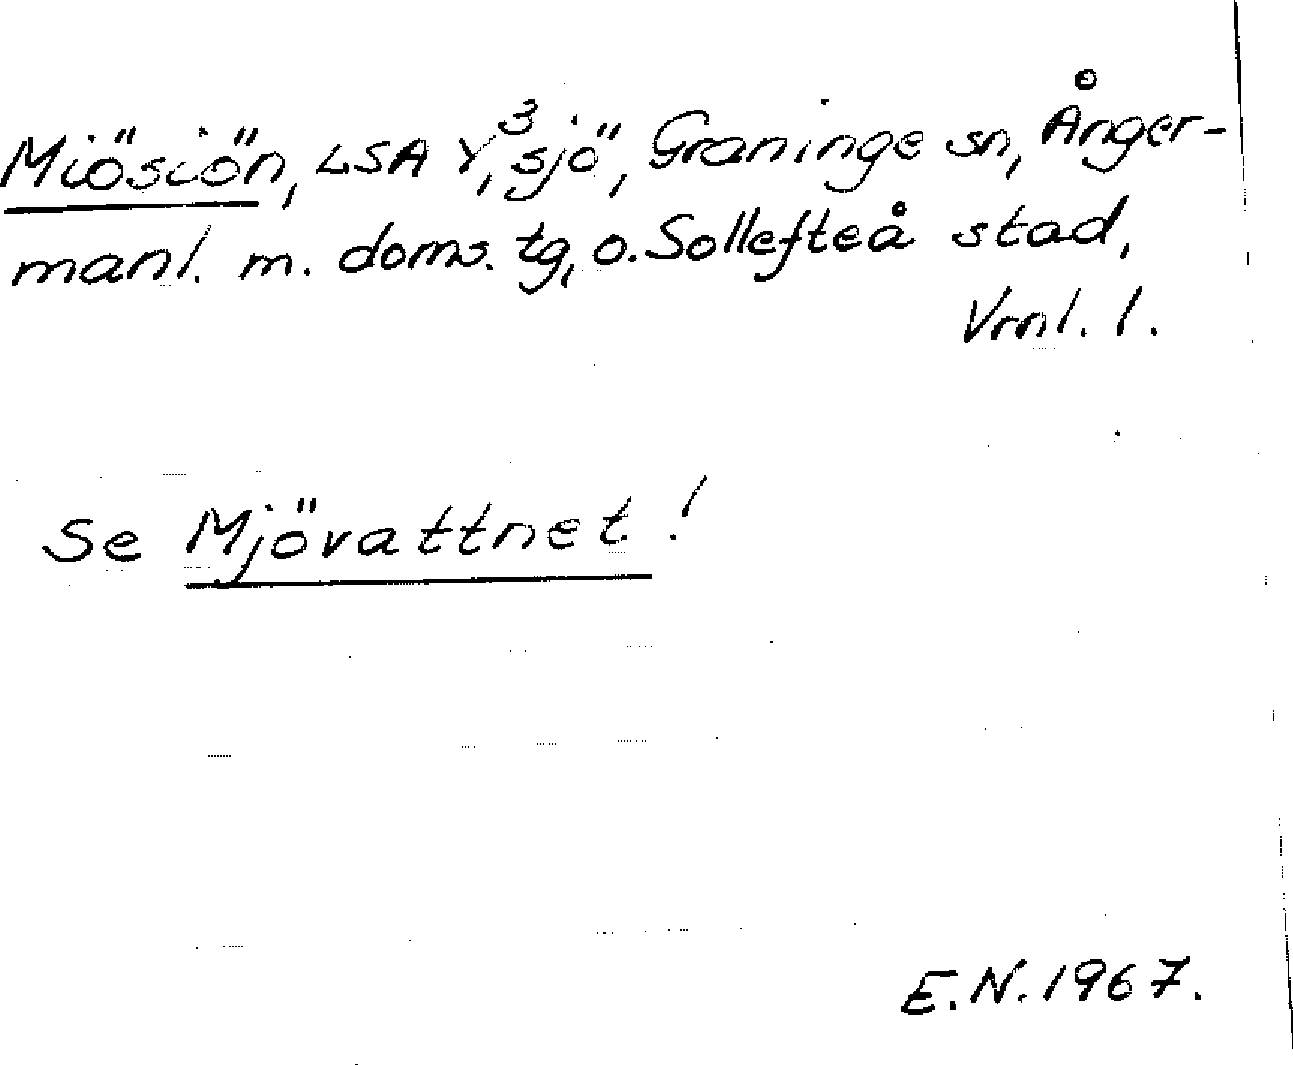 Miösiön, LSA Y³, sjö, Graninge sn, Ånger-
manl. m. doms. tg, o. Sollefteå stad,
Vrnl. l.
Se Mjövattnet!
E.N. 1967.